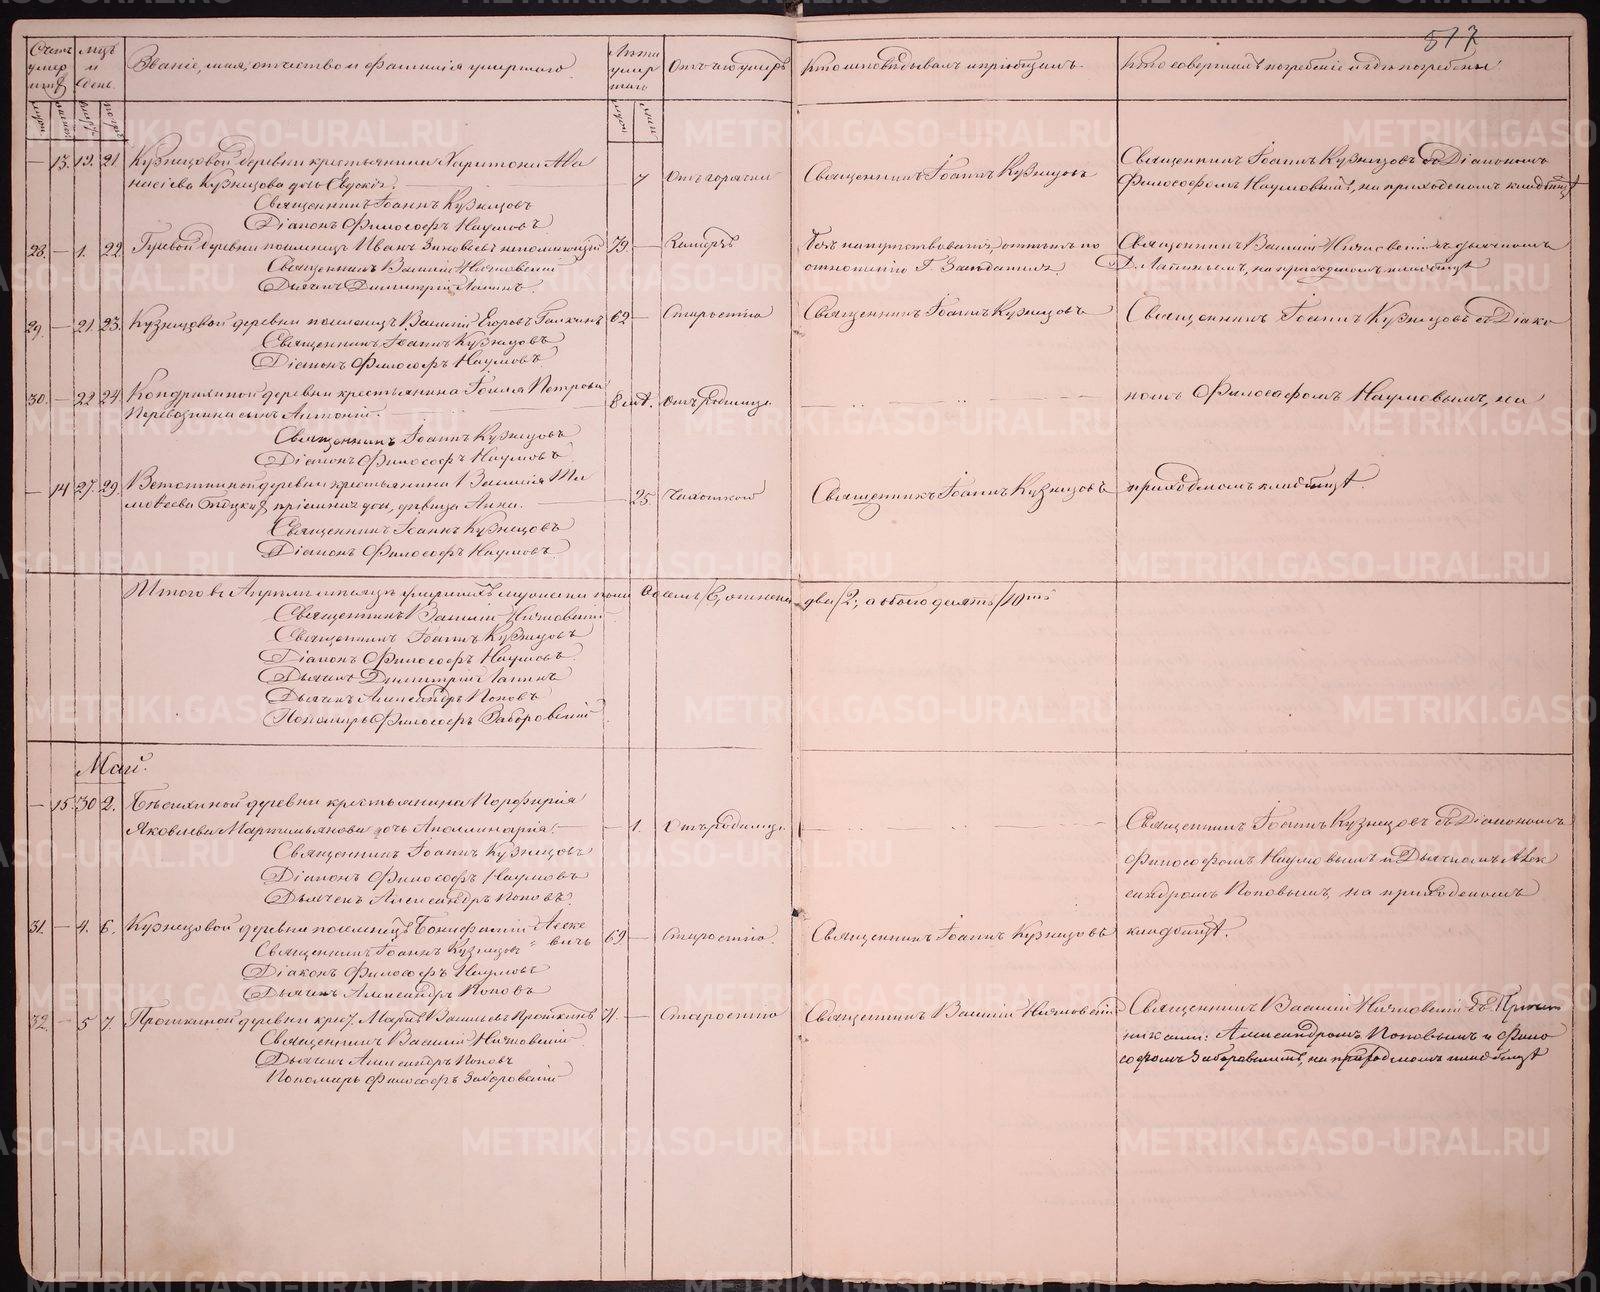 517
Счетъ умершихъ
Мцъ и день
Званіе, имя, отчество и фамилія умершаго.
Лѣта умершаго
Отъ чего умеръ
Кто исповѣдывалъ и пріобщалъ
Кто совершалъ погребеніе и гдѣ погребены
— 13. 19. 21
Кузнецовой деревни крестьянина Харитона Аѳа
насіева Кузнецова дочь Евдокія.
7 Отъ горячки
Священникъ Іоаннъ Кузнецовъ
Священникъ Іоаннъ Кузнецовъ съ Діакономъ
Философомъ Наумовымъ, на приходскомъ кладбищѣ
Священникъ Іоаннъ Кузнецовъ
Діаконъ Философъ Наумовъ
28. — 1. 22
Гуевой деревни поселенецъ Иванъ Зиновьевъ непомнящій
79 —
Священникъ Василій Низковскій съ дьячкомъ
Д. Лапинымъ, на приходскомъ кладбищѣ
Священникъ Василій Низковскій
Дьячекъ Димитрій Лапинъ.
29. — 21. 23.
Кузнецовой деревни поселенецъ Василій Егоровъ Галкинъ
62 — Старостію
Священникъ Іоаннъ Кузнецовъ
Священникъ Іоаннъ Кузнецовъ съ Діако
Священникъ Іоаннъ Кузнецовъ
Діаконъ Философъ Наумовъ
30. — 22 24
Кондрахиной деревни крестьянина Іоиля Петрова
Перевозкина сынъ Антоній.
8 мѣс. Отъ родимца
номъ Философомъ Наумовымъ, на
Священникъ Іоаннъ Кузнецовъ
Діаконъ Философъ Наумовъ
— 14 27. 29.
деревни крестьянина Василія Ти
моѳеева пріемная дочь, дѣвица Анна.
25. Чахоткою
Священникъ Іоаннъ Кузнецовъ
приходскомъ кладбищѣ.
Священникъ Іоаннъ Кузнецовъ
Діаконъ Философъ Наумовъ
Итого въ Апрѣлѣ мѣсяцѣ умершихъ мужеска пола
два /2; а обоего десять /10ть
Священникъ Василій Низковскій
Священникъ Іоаннъ Кузнецовъ
Діаконъ Философъ Наумовъ
Дьячекъ Димитрій Лапинъ
Дьячекъ Александръ Поповъ
Пономарь Философъ Заборовскій
Май.
— 15. 30 2.
деревни крестьянина Порфирія
Яковлева Мартемьянова дочь Аполлинарія.
1. Отъ родимца
Священникъ Іоаннъ Кузнецовъ съ Діакономъ
Философомъ Наумовымъ и Дьячкомъ Алек
сандромъ Поповымъ, на приходскомъ
кладбищѣ.
Священникъ Іоаннъ Кузнецовъ
Діаконъ Философъ Наумовъ
Дьячекъ Александръ Поповъ.
31. — 4. 6.
Кузнецовой деревни поселенецъ Бонифатій
69 — Старостію.
Священникъ Іоаннъ Кузнецовъ
Священникъ Іоаннъ Кузнецовъ
Діаконъ Философъ Наумовъ
Дьячекъ Александръ Поповъ
32. — 5 7.
Прошкиной деревни крест. Васильевъ Прошкинъ
71. — Старостію
Священникъ Василій Низковскій
Священникъ Василій Низковскій съ Причет
никами: Александромъ Поповымъ и Фило
софомъ Заборовскимъ, на приходскомъ кладбищѣ
Священникъ Василій Низковскій
Дьячекъ Александръ Поповъ
Пономарь Философъ Заборовскій
METRIKI.GASO-URAL.RU